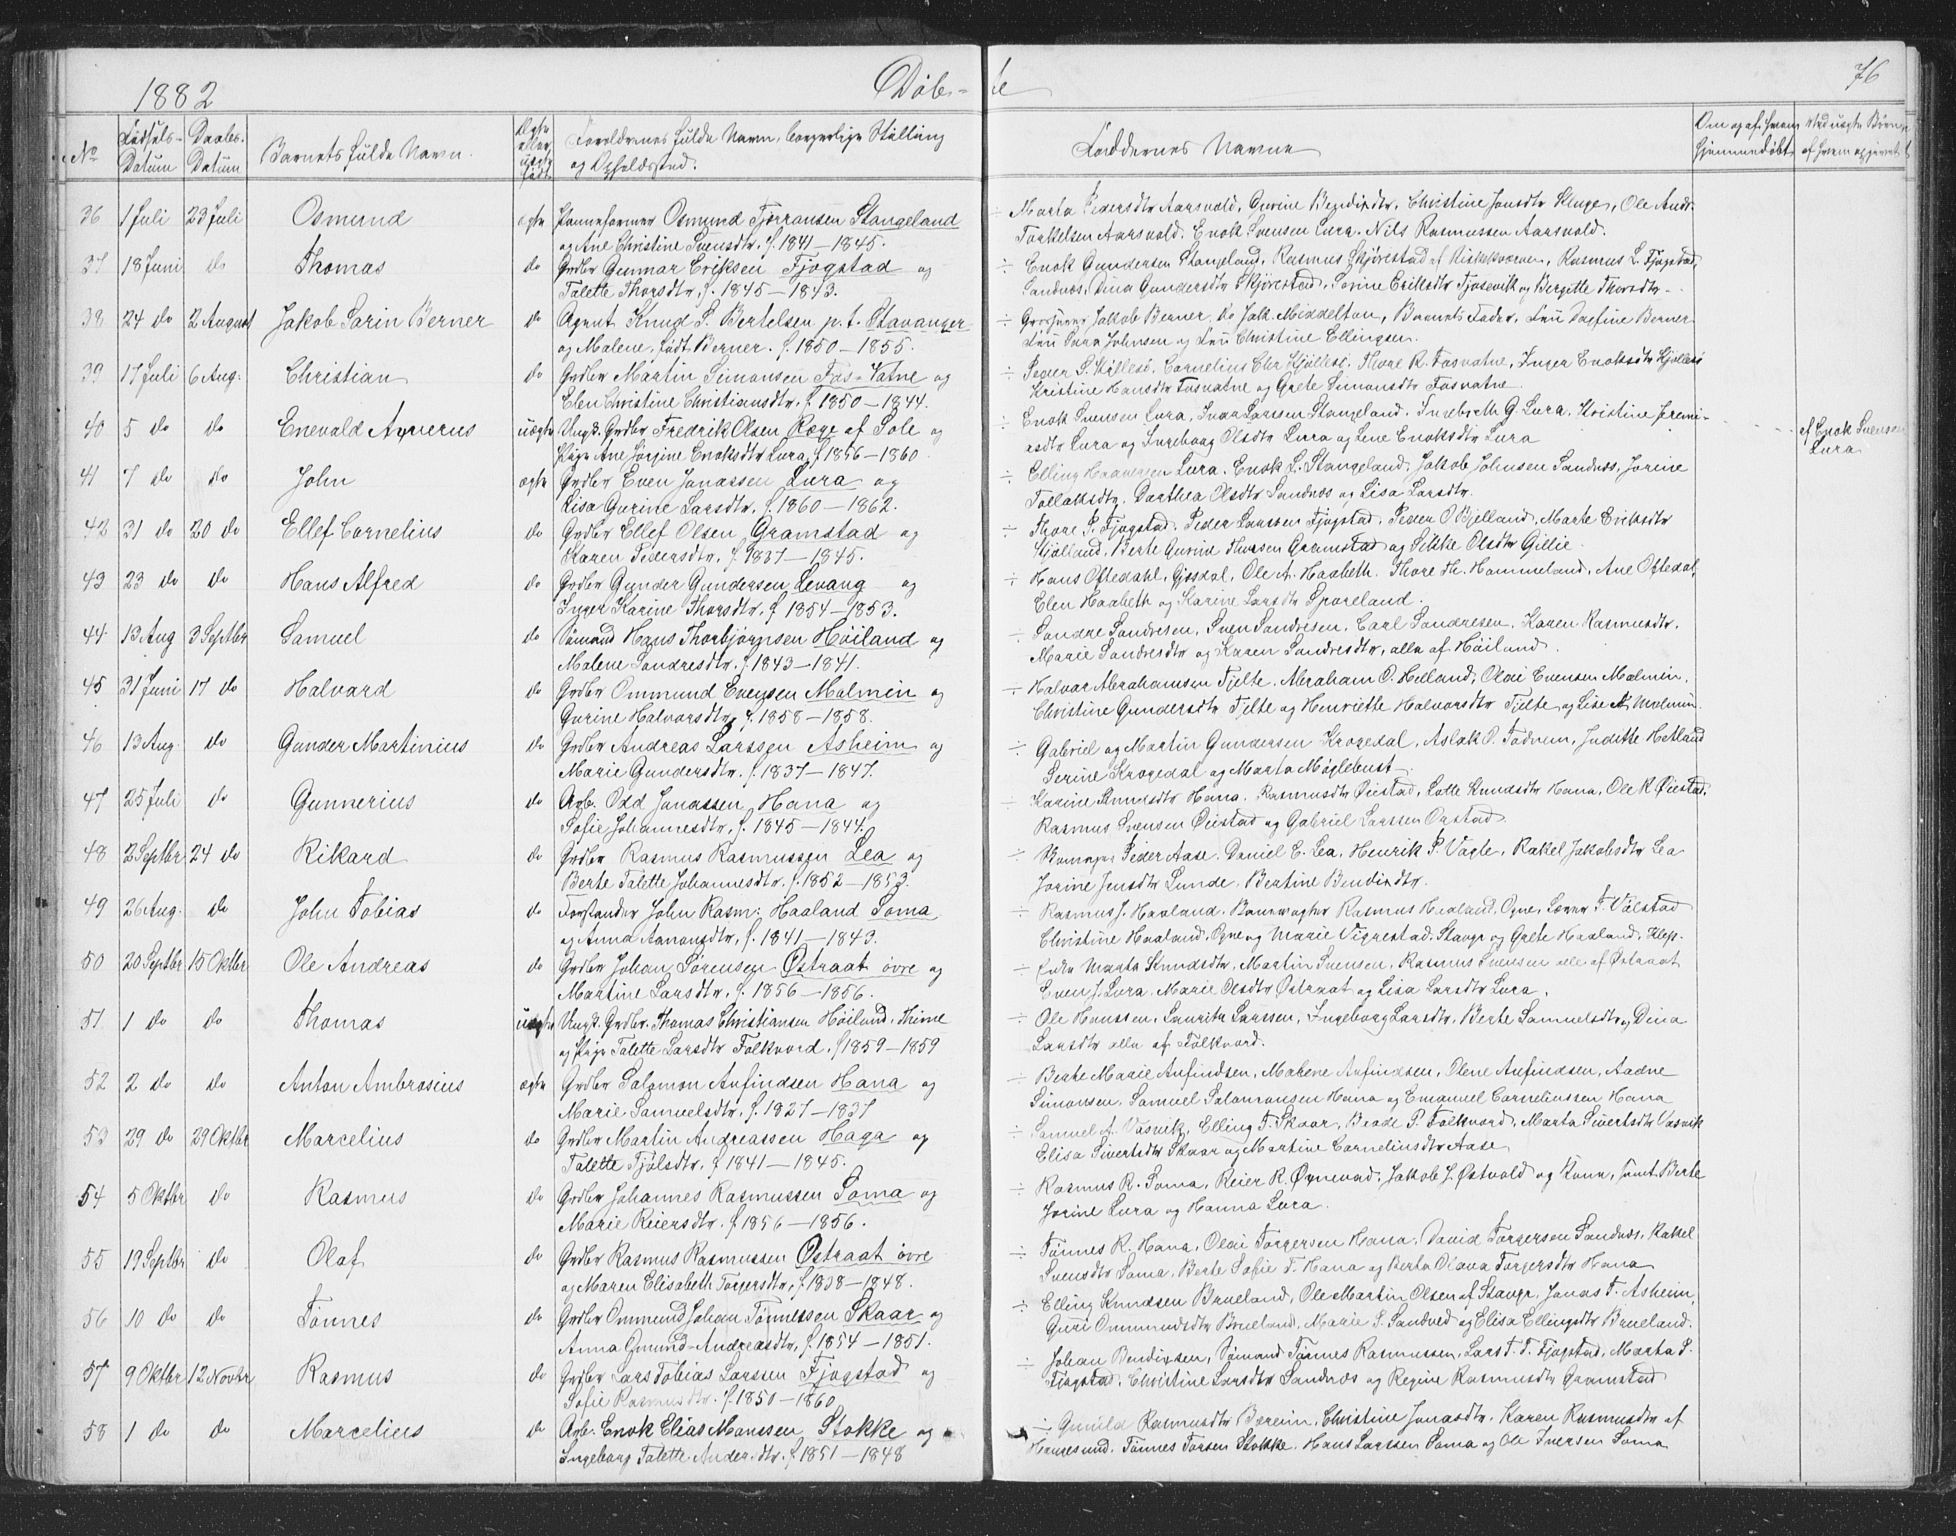 1882 Døbte 76
No Fødsels-Datum Daabs-Datum Barnets fulde Navn. Ægte eller uægte født Forældrenes fulde Navn, borgerlige Stilling og Opholdssted. Faddernes Navne Om og af hvem hjemmedøbt Ved uægte Børn af hvem opgivet
36 1 Juli 23 Juli Osmund ægte Pannefarmer Osmund Tjørransen Stangeland ÷ Marta Pedersdtr Aarsvold, Gurine Bendixdtr, Christine Jonsdtr Skeige, Ole Andr.
og Ane Christine Svensdtr. f. 1841 — 1845. Torkelsen Aarsvold. Enok Svensen Lura. Nils Rasmussen Aarsvold.
37 18 Juni do Thomas do Grdbr Gunnar Eriksen Fjogstad og ÷ Enok Gundersen Stangeland, Rasmus Skjørestad af Riskekværven, Rasmus L. Fjogstad,
Talette Thorsdtr, f. 1845 — 1843. Sandnæs, Dina Gundersdtr Skjørestad, Sorine Eriksdtr Fjosevik og Bergitte Thorsdtr
38 24 do 2 August Jakob Sorin Berner do Agent Knud S. Bertelsen p.t. Stavanger ÷ Grosserer Jakob Berner, do Jak. Middelton, Barnets Fader, Fru Dorfine Berner
og Malene, født Berner. f. 1850 — 1855. Fru Sara Johnsen og Fru Christine Ellingsen.
39 17 Juli 6 Aug: Christian do Grdbr Martin Simonsen Fos-Vatne og ÷ Peder S. Kyllesø. Cornelius Chr Kjølless. Thore R. Fosvatne, Inger Enoksdtr Kjøllesø
Elen Christine Christiansdtr. f. 1850 — 1844. Kristine Hansdtr Fosvatne og Grete Simonsdtr Fosvatne
40 5 do do Enevald Agnerus uægte Ungk. Grdbr Fredrik Olsen Røge af Sole og ÷ Enok Svensen Lura, Ivar Larssen Stangeland. Ingebreth G. Lura, Kristine Jeremi- af Enok Svensen
Pige Ane Jørgine Enoksdtr Lura, f. 1856 — 1860 asdtr Lura og Ingeborg Olsdtr Lura og Lene Enoksdtr Lura Lura
41 7 do do John ægte Grdbr Even Jonassen Lura og ÷ Elling Haavessen Lura. Enok L. Stangeland. Jakob Johnsen Sandnæs, Jorine
Lisa Gurine Larsdtr. f. 1860 — 1862. Tollaksdtr. Dorthea Olsdtr Sandnæs og Lisa Larsdtr.
42 31 do 20 do Ellef Cornelius do Grdbr Ellef Olsen Gramstad og ÷ Thore P. Fjogstad. Peder Larssen Fjogstad. Peder O Bjelland, Marte Eriksdtr
Karen Pedersdtr. f. 1837 — 1845. Kjølland. Berte Gurine Thorsen Gramstad og Sikke Olsdtr Gillie.
43 23 do do Hans Alfred do Grdbr Gunder Gundersen Levang og ÷ Hans Oftedahl, Gjesdal, Ole A. Haabeth. Thore Th. Hammeland, Ane Oftedal,
Inger Karine Thorsdtr. f. 1854 — 1853. Elen Haabeth og Karine Larsdtr Sporeland.
44 13 Aug 3 Septbr Samuel do Sømand Hans Thorbjørnsen Høiland og ÷ Sondre Sondresen, Sven Sondresen, Carl Sondresen, Karen Rasmusdtr.
Malene Sondresdtr. f. 1843 — 1841. Marie Sondresdtr og Karen Sondresdtr, alle af Høiland.
45 31 Juni 17 do Halvard do Grdbr Ommund Evensen Malmin og ÷ Halvar Abrahamsen Tjelte. Abraham O. Helland, Olai Evensen Malmin.
Gurine Halvorsdtr, f. 1858 — 1858. Christine Gundersdtr Tjelte og Henriette Halvorsdtr Tjelte og Lise A Molmin.
46 13 Aug. do Gunder Martinius do Grdbr Andreas Larssen Asheim og ÷ Gabriel og Martin Gundersen Krogedal, Aslak O. Fodnem, Judithe Hetland
Marie Gundersdtr. f. 1837 — 1847. Serine Krogedal og Marta Møglebust
47 25 Juli do Gunnerius do Arb. Odd Jonassen Hana og ÷ Karine Knudsdtr Hana. Rasmusdtr Øiestad, Lotte Knudsdtr Hana, Ole R. Øiestad.
Sofie Johannesdtr, f. 1845 — 1844. Rasmus Svensen Øiestad og Gabriel Larssen Orstad
48 2 Septbr 24 do Rikard do Grdbr Rasmus Rasmussen Lea og ÷ Peder Aase. Daniel E. Lea, Henrik P. Vagle, Rakel Jakobsdtr Lea
Berte Talette Johannesdtr. f. 1852 — 1853. Jorine Jensdtr Lunde. Bertine Bendixdtr.
49 26 Aug. do John Tobias do Forstander John Rasm: Haaland Soma ÷ Rasmus J. Haaland. Banevogter Rasmus Haaland, Ogne, Søren T. Vølstad
og Anna Aanonsdtr. f. 1841 — 1843. Christine Haaland, Ogne og Marie Vigrestad, Stavgr og Grete Haaland, Klep.
50 20 Septbr 15 Oktbr Ole Andreas do Grdbr Johan Sørensen Østraat øvre og ÷ Enke Marta Knudsdtr, Martin Svensen, Rasmus Svensen alle af Østraat
Martine Larsdtr. f. 1856 — 1856. Even J. Lura. Marie Olsdtr Østraat og Lisa Larsdtr Lura.
51 1 do do Thomas uægte Ungk. Grdbr. Thomas Christiansen Høiland, Thime ÷ Ole Hanssen, Lauritz Larssen, Ingeborg Larsdtr. Berte Samuelsdtr og Dina
og Pige Talette Larsdtr Folkvord. f 1859 — 1859 Larsdtr alle af Folkvord.
52 2 do do Anton Ambrosius ægte Grdbr Salomon Anfindsen Hana og ÷ Berte Marie Anfindsen, Malene Anfindsen, Olene Anfindsen, Aadne
Marie Samuelsdtr. f. 1827 — 1837 Simonsen. Samuel Salomonsen Hana og Emanuel Corneliussen Hana
53 29 do 29 Oktbr Marcelius do Grdbr Martin Andreassen Haga og ÷ Samuel A. Vasvik, Elling T. Skaar, Beade P. Folkvord, Marta Sivertsdtr Vasvik
Talette Tjølsdtr. f 1841 — 1845. Elisa Sivertsdtr Skaar og Martine Corneliusdtr Aase
54 5 Oktbr do Rasmus do Grdbr Johannes Rasmussen Soma og ÷ Rasmus R. Soma, Reier R. Øgnevad. Jakob J. Østvold og Kone, samt Berte
Marie Reiersdtr. f 1856 — 1856. Jorine Lura og Hanna Lura.
55 19 Septbr do Olaf do Grdbr Rasmus Rasmussen Østraat øvre ÷ Tønnes R. Hana, Olai Torgersen Hana. David Torgersen Sandnæs, Rakel
og Maren Elisabeth Torgersdtr, f. 1838 — 1848. Svensdtr Soma. Berte Sofie T. Hana og Berta Olava Torgersdtr Hana
56 10 do do Tønnes do Grdbr Ommund Johan Tønnessen Skaar og ÷ Elling Knudsen Brueland, Ole Martin Olsen af Stavgr, Jonas T. Asheim,
Anna Gmund-Andreasdtr, f. 1854 — 1851. Guri Ommundsdtr Brueland, Marie S. Sandved og Elisa Ellingsdtr Brueland.
57 9 Oktbr 12 Novbr Rasmus do Grdbr Lars Tobias Larssen Fjogstad og ÷ Johan Bendixsen, Sømand Tønnes Rasmussen, Lars T. T. Fjogstad, Marta S.
Sofie Rasmusdtr. f. 1850 — 1860 Fjogstad, Christine Larsdtr Sandnæs og Regine Rasmusdtr Gramstad
58 1 do do Marcelius do Arb. Enok Elias Monssen Stokke og ÷ Gunild Rasmusdtr Bereim, Christine Jonasdtr. Karen Rasmusdtr af
Ingeborg Talette Andersdtr. f 1851 — 1848 Hanesund. Tønnes Torsen Stokke. Hans Larssen Soma og Ole Iversen Soma